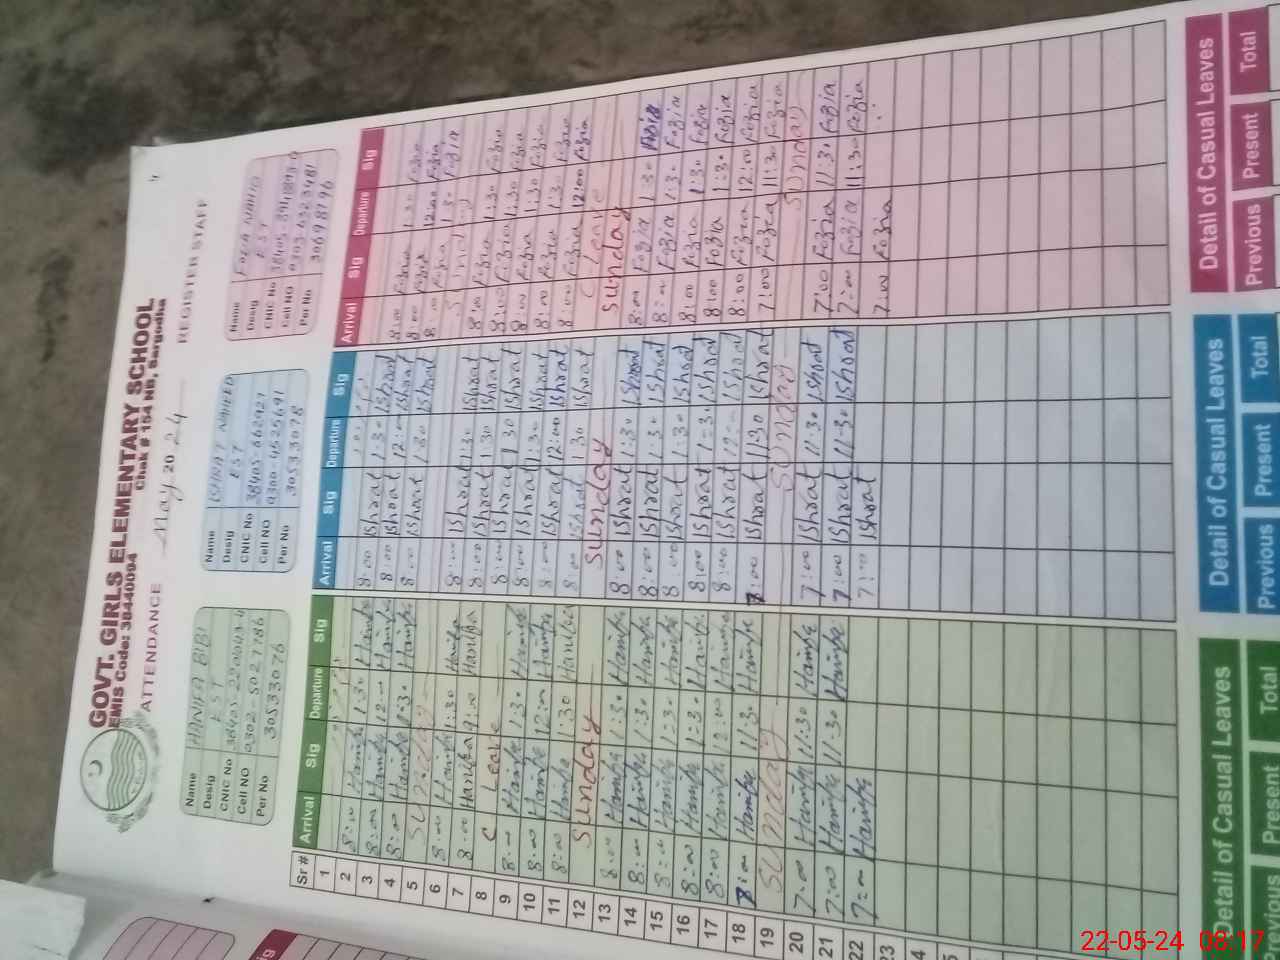 GOVT. GIRLS ELEMENTARY SCHOOL
EMIS Code: 38440094 Chak # 154 NB, Sargodha
ATTENDANCE May 2024 REGISTER STAFF
Name HANIFA BIBI
Desig EST
CNIC No
Cell NO 0302-5027786
Per No 30533076
Name ISHRAT NAHEED
Desig EST
CNIC No
Cell NO 0300-4525691
Per No 30533078
Name
Desig EST
CNIC No
Cell NO
Per No 30698196
Sr # Arrival Sig Departure Sig Arrival Sig Departure Sig Arrival Sig Departure Sig
1
2 8:00 Hanifa 8:00 Ishrat 8:00 Fozia 1:30 Fozia
3 8:00 Hanifa 1:30 Hanifa 8:00 Ishrat 1:30 Ishrat 8:00 Fozia 12:00 Fozia
4 8:00 Hanifa 12:00 Hanifa 8:00 Ishrat 12:00 Ishrat 8:00 Fozia 1:30 Fozia
5 Sunday 1:30 Hanifa 1:30 Ishrat Sunday
6 8:00 Hanifa 1:30 Hanifa 8:00 Ishrat 1:30 Ishrat 8:00 Fozia 1:30 Fozia
7 8:00 Hanifa 9:00 Hanifa 8:00 Ishrat 1:30 Ishrat 8:00 Fozia 1:30 Fozia
8 C Leave 8:00 Ishrat 1:30 Ishrat 8:00 Fozia 1:30 Fozia
9 8:00 Hanifa 1:30 Hanifa 8:00 Ishrat 1:30 Ishrat 8:00 Fozia 1:30 Fozia
10 8:00 Hanifa 12:00 Hanifa 8:00 Ishrat 12:00 Ishrat 8:00 Fozia 12:00 Fozia
11 8:00 Hanifa 1:30 Hanifa 8:00 Ishrat 1:30 Ishrat C Leave
12 Sunday Sunday Sunday
13 8:00 Hanifa 1:30 Hanifa 8:00 Ishrat 1:30 Ishrat 8:00 Fozia 1:30 Fozia
14 8:00 Hanifa 1:30 Hanifa 8:00 Ishrat 1:30 Ishrat 8:00 Fozia 1:30 Fozia
15 8:00 Hanifa 1:30 Hanifa 8:00 Ishrat 1:30 Ishrat 8:00 Fozia 1:30 Fozia
16 8:00 Hanifa 1:30 Hanifa 8:00 Ishrat 1:30 Ishrat 8:00 Fozia 1:30 Fozia
17 8:00 Hanifa 12:00 Hanifa 8:00 Ishrat 12:00 Ishrat 8:00 Fozia 12:00 Fozia
18 8:00 Hanifa 11:30 Hanifa 7:00 Ishrat 11:30 Ishrat 7:00 Fozia 11:30 Fozia
19 Sunday Sunday Sunday
20 7:00 Hanifa 11:30 Hanifa 7:00 Ishrat 11:30 Ishrat 7:00 Fozia 11:30 Fozia
21 7:00 Hanifa 11:30 Hanifa 7:00 Ishrat 11:30 Ishrat 7:00 Fozia 11:30 Fozia
22 7:00 Hanifa 7:00 Ishrat 7:00 Fozia
23
Detail of Casual Leaves Detail of Casual Leaves Detail of Casual Leaves
Previous Present Total Previous Present Total Previous Present Total
22-05-24 08:17